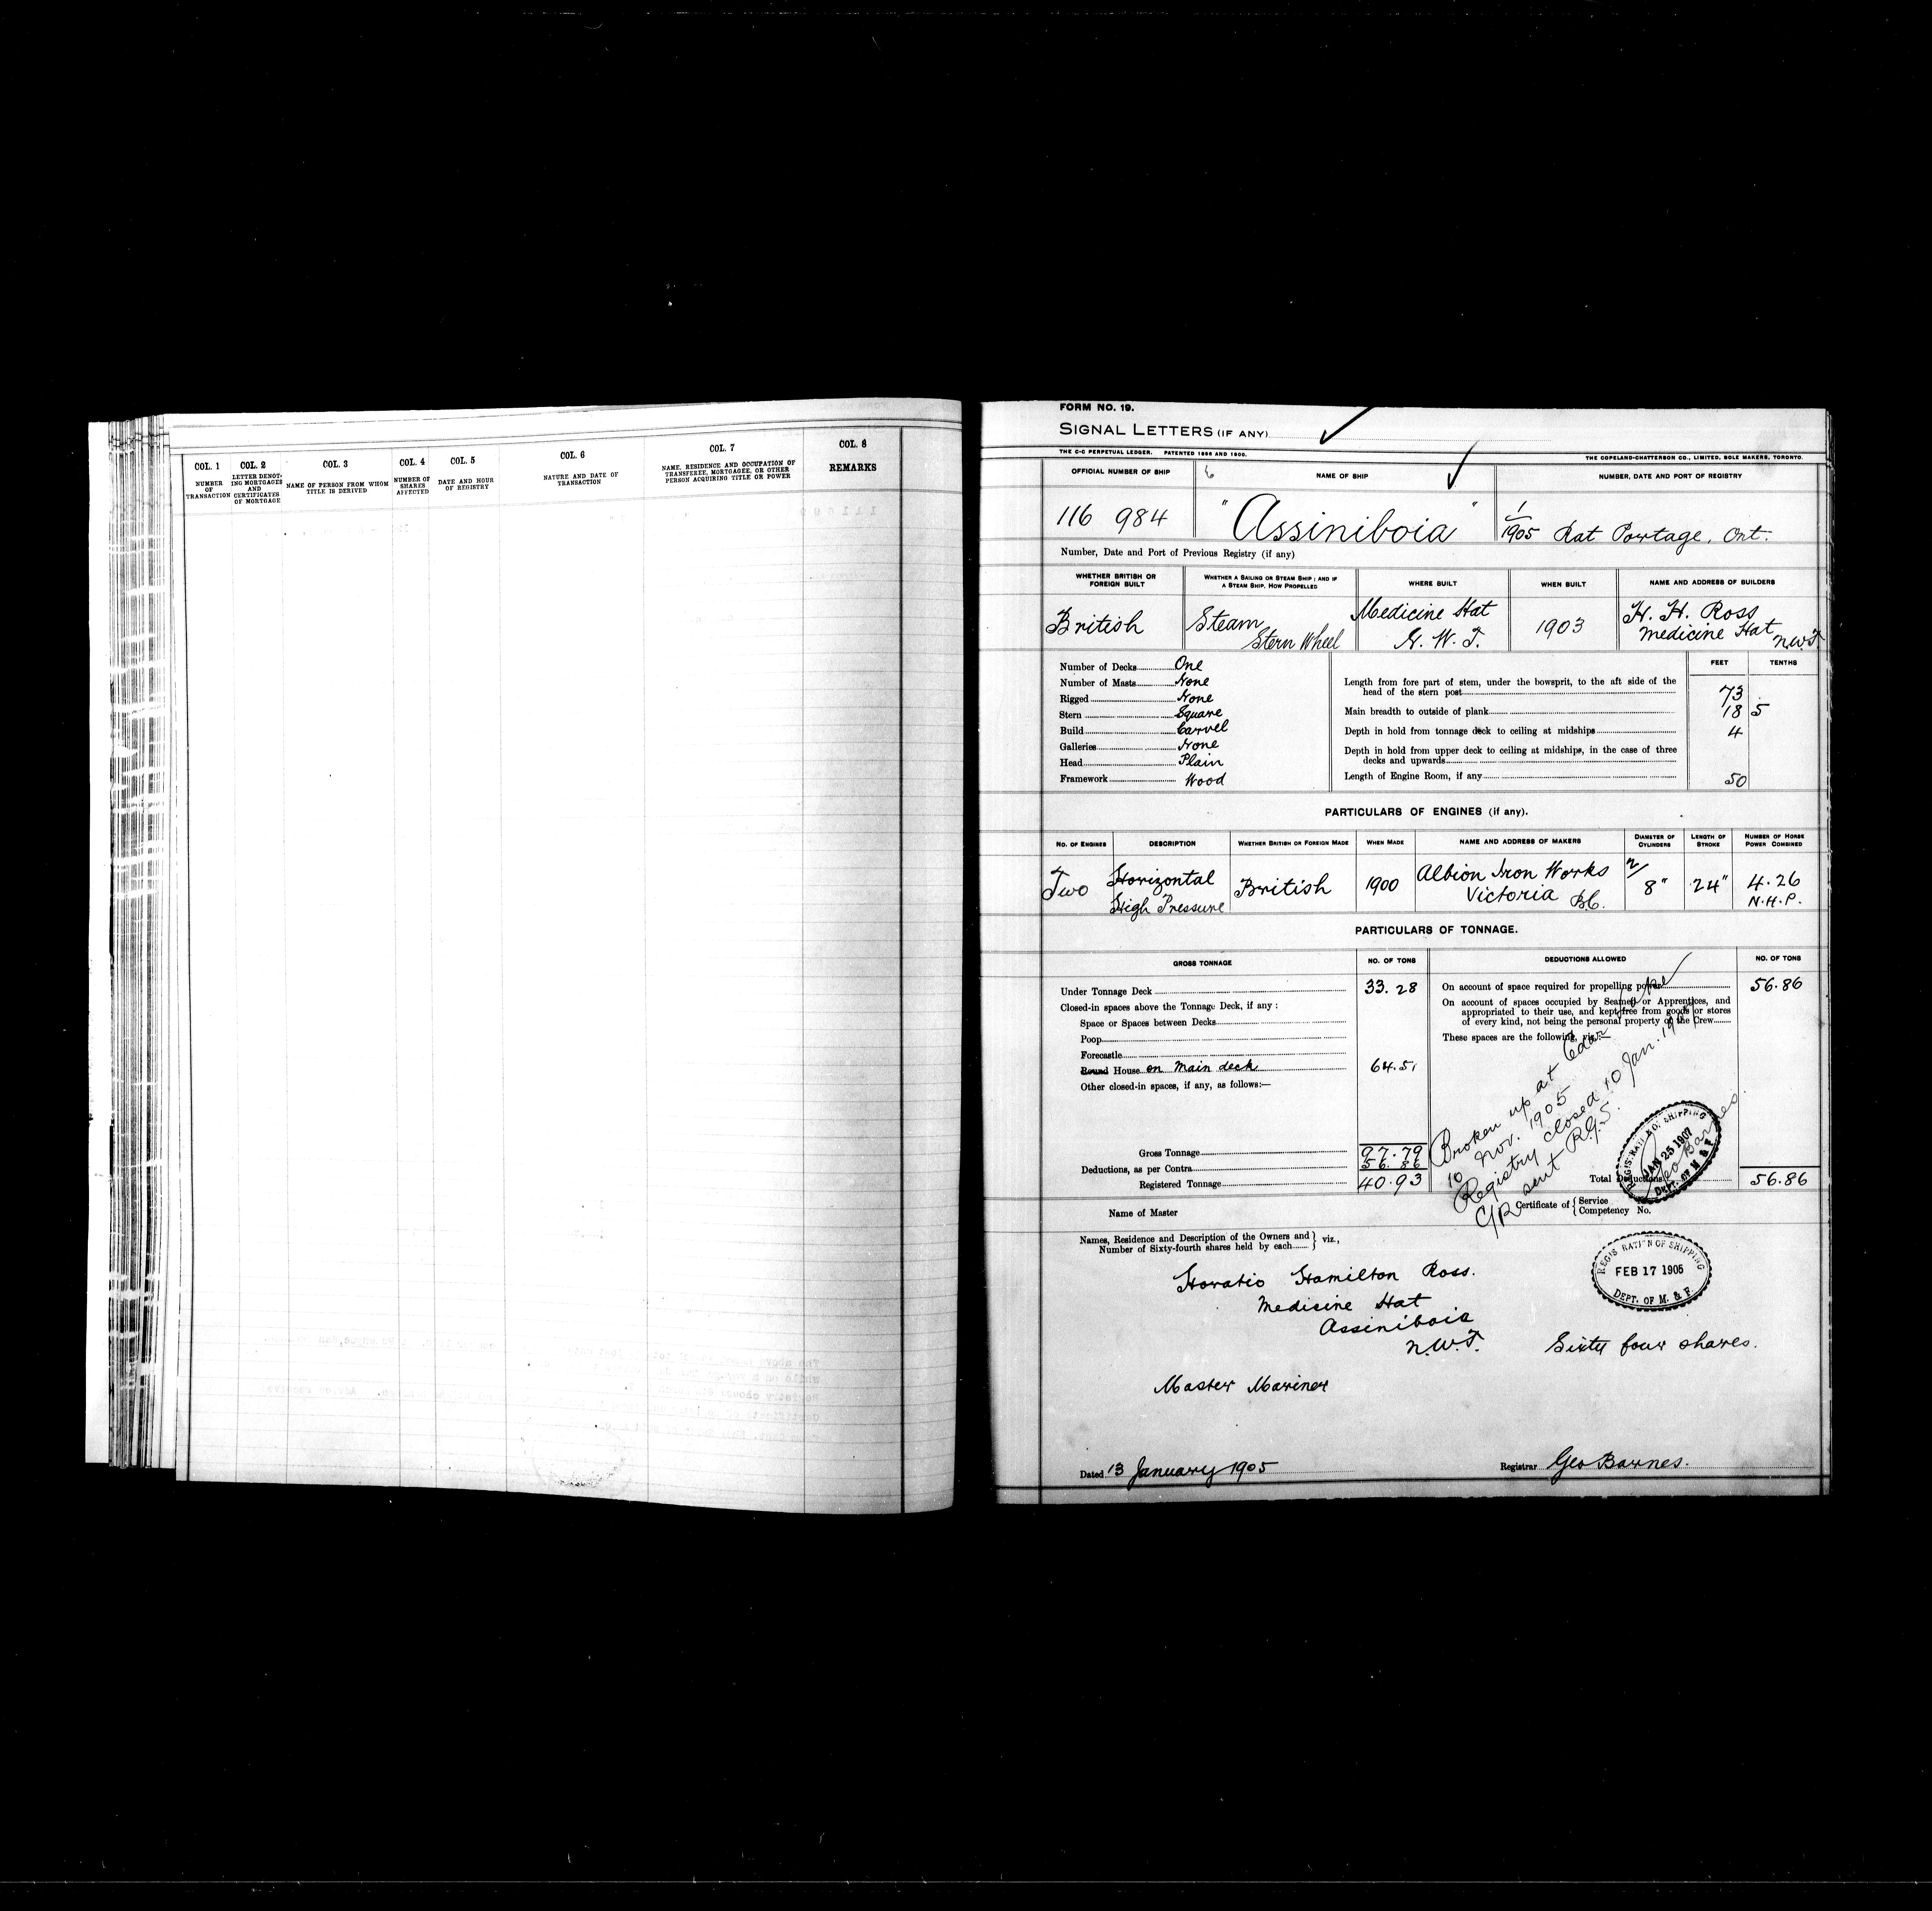 COL. 1
NUMBER
OF
TRANSACTION
COL. 2
LETTER DENOT-
ING MORTGAGES
AND
CERTIFICATES
OF MORTGAGE
COL. 3
NAME OF PERSON FROM WHOM
TITLE IS DERIVED
COL. 4
NUMBER OF
SHARES
AFFECTED
COL. 5
DATE AND HOUR
OF REGISTRY
COL. 6
NATURE AND DATE OF
TRANSACTION
COL. 7
NAME, RESIDENCE AND OCCUPATION OF
TRANSFEREE, MORTGAGEE, OR OTHER
PERSON ACQUIRING TITLE OR POWER
COL. 8
REMARKS
FORM NO. 19.
SIGNAL LETTERS (IF ANY)
THE C-C PERPETUAL LEDGER. PATENTED 1896 AND 1900.
THE COPELAND-CHATTERSON CO., LIMITED, SOLE MAKERS, TORONTO.
OFFICIAL NUMBER OF SHIP
NAME OF SHIP
NUMBER, DATE AND PORT OF REGISTRY
116 984
"Assiniboia"
1/1905 Rat Portage, Ont.
Number, Date and Port of Previous Registry (if any)
WHETHER BRITISH OR
FOREIGN BUILT
WHETHER A SAILING OR STEAM SHIP; AND IF
A STEAM SHIP, HOW PROPELLED
WHERE BUILT
WHEN BUILT
NAME AND ADDRESS OF BUILDERS
British
Steam
Stern Wheel
Medicine Hat
N. W. T.
1903
H. H. Ross
Medicine Hat
N.W.T.
Number of Decks One
Number of Masts None
Rigged None
Stern Square
Build Carvel
Galleries None
Head Plain
Framework Wood
FEET TENTHS
Length from fore part of stem, under the bowsprit, to the aft side of the
head of the stern post 73
Main breadth to outside of plank 18 5
Depth in hold from tonnage deck to ceiling at midships 4
Depth in hold from upper deck to ceiling at midships, in the case of three
decks and upwards
Length of Engine Room, if any 50
PARTICULARS OF ENGINES (if any).
NO. OF ENGINES
DESCRIPTION
WHETHER BRITISH OR FOREIGN MADE
WHEN MADE
NAME AND ADDRESS OF MAKERS
DIAMETER OF
CYLINDERS
LENGTH OF
STROKE
NUMBER OF HORSE
POWER COMBINED
Two
Horizontal
High Pressure
British
1900
Albion Iron Works
Victoria B.C.
2/
8"
24"
4.26
N.H.P.
PARTICULARS OF TONNAGE.
GROSS TONNAGE
NO. OF TONS
DEDUCTIONS ALLOWED
NO. OF TONS
Under Tonnage Deck 33.28
Closed-in spaces above the Tonnage Deck, if any:
Space or Spaces between Decks
Poop
Forecastle
Round House on main deck 64.51
Other closed-in spaces, if any, as follows:—
Gross Tonnage 97.79
Deductions, as per Contra 56.86
Registered Tonnage 40.93
On account of space required for propelling power 56.86
On account of spaces occupied by Seamen or Apprentices, and
appropriated to their use, and kept free from goods or stores
of every kind, not being the personal property of the Crew
These spaces are the following, viz.:—
Broken up at Cedar Lake
10 Nov. 1905
Registry closed 10 Jan. 1907
C/R sent R.G.S.
Geo Barnes.
REGISTRATION OF SHIPPING
JAN 25 1907
DEPT. OF M. & F.
Total Deductions 56.86
Name of Master
Certificate of { Service
Competency No.
Names, Residence and Description of the Owners and
Number of Sixty-fourth shares held by each } viz.,
REGISTRATION OF SHIPPING
FEB 17 1905
DEPT. OF M. & F.
Horatio Hamilton Ross.
Medicine Hat
Assiniboia
N.W.T.
Sixty four shares.
Master Mariner
Dated 13 January 1905
Registrar Geo Barnes.